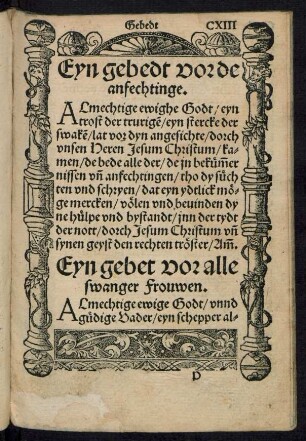 Gebedt CXIII
Eyn gebedt vor de
anfechtinge.
ALmechtige ewighe Godt/eyn
trost der trurigē/eyn stercke der
swakē/lat vor dyn angesichte/dorch
vnsen Heren Jesum Christum/ka-
men/de bede alle der/de jn bekūmer
nissen vn̄ anfechtingen/tho dy sůch
ten vnd schryen/dat eyn ydtlick mö-
ge mercken/völen vnd bevinden dy
ne hülpe vnd bystandt/jnn der tydt
der nott/dorch Jesum Christum vn̄
synen geyst den rechten tröster/Am̄.
Eyn gebet vor alle
swanger Frouwen.
ALmechtige ewige Godt/vnnd
gůdige Vader/eyn schepper al-
P